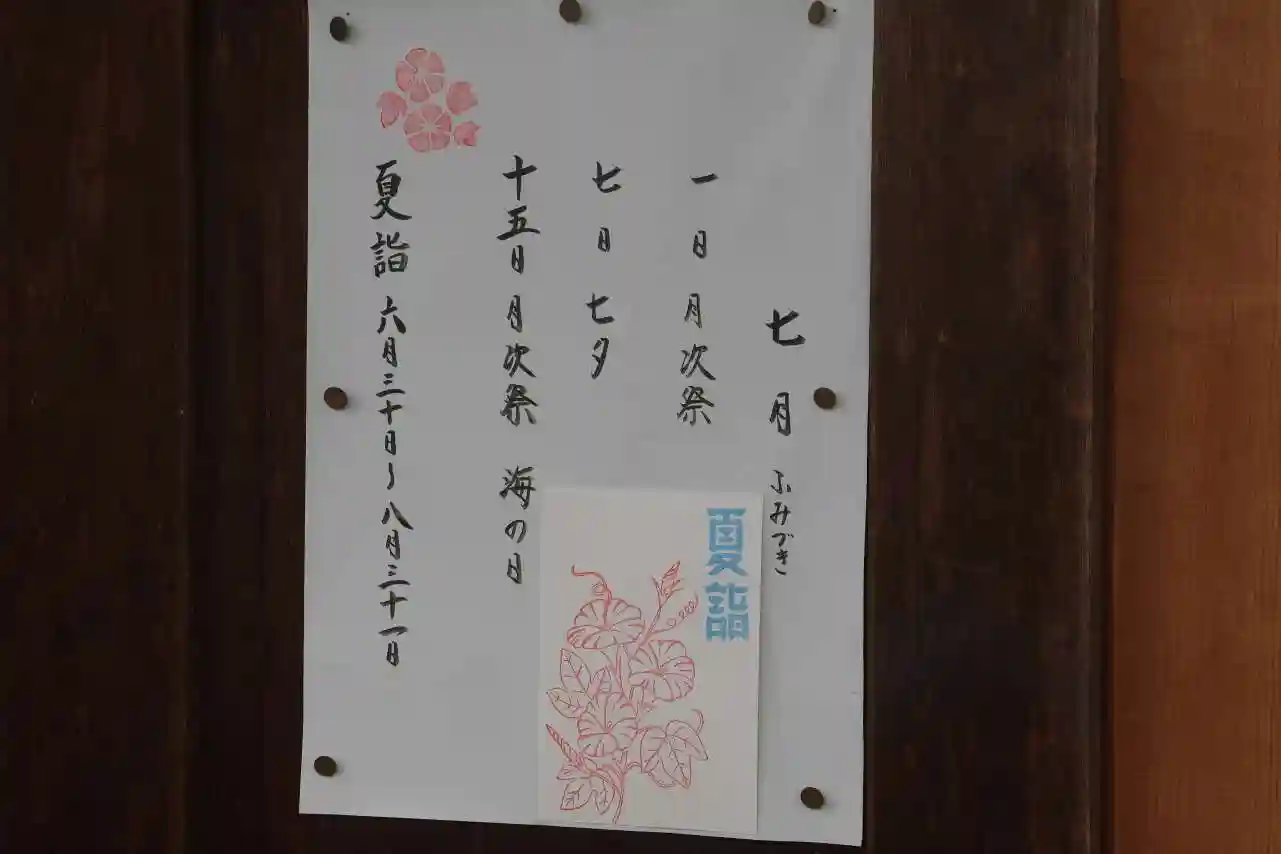 七月 ふみづき
一日 月次祭
七日 七夕
十五日 月次祭 海の日
夏詣 六月三十日〜八月三十一日
夏詣